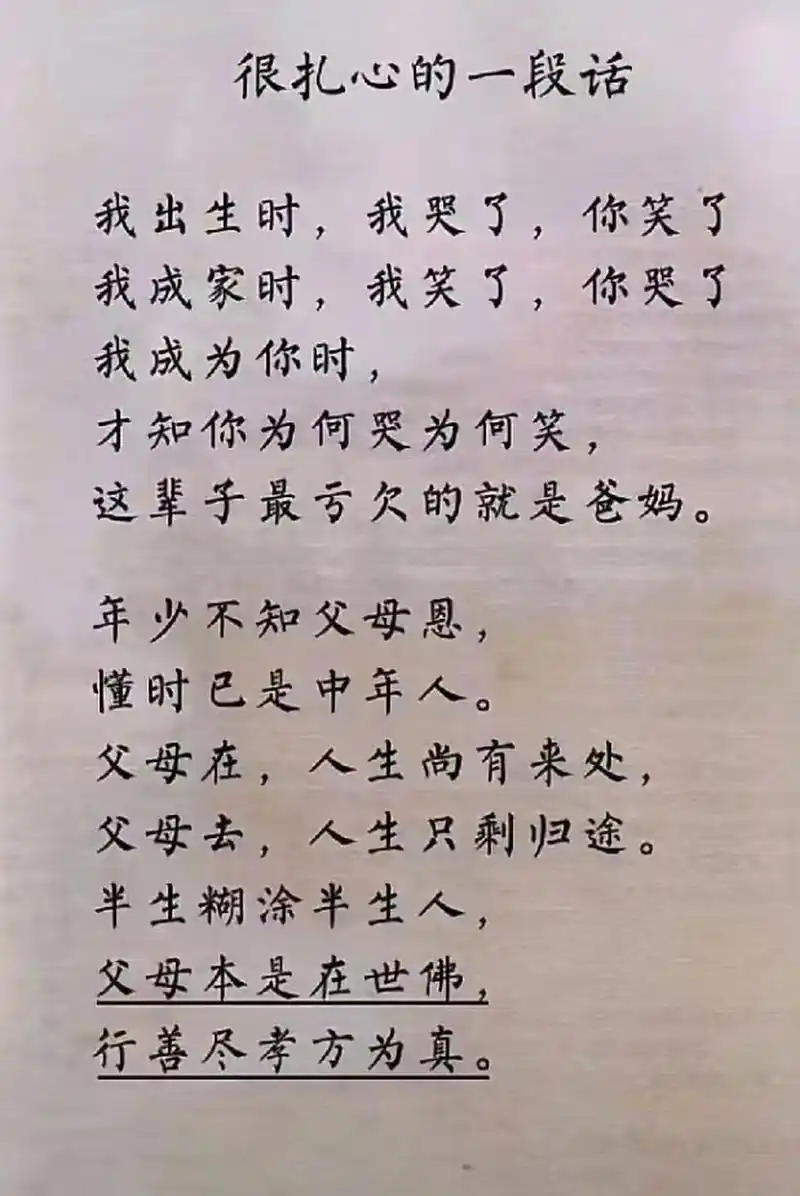 很扎心的一段话
我出生时，我哭了，你笑了
我成家时，我笑了，你哭了
我成为你时，
才知你为何哭为何笑，
这辈子最亏欠的就是爸妈。
年少不知父母恩，
懂时已是中年人。
父母在，人生尚有来处，
父母去，人生只剩归途。
半生糊涂半生人，
父母本是在世佛，
行善尽孝方为真。